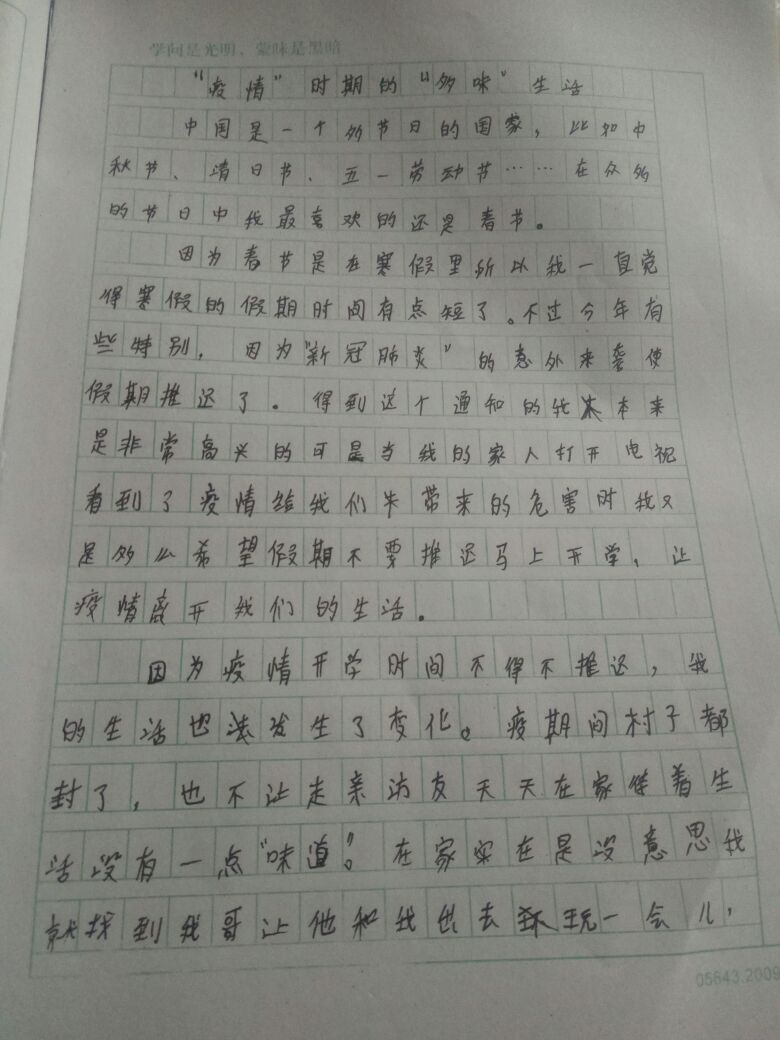 学问是光明、蒙昧是黑暗
“疫情”时期的“多味”生活
中国是一个多节日的国家，比如中
秋节、清日节、五一劳动节……在众多
的节日中我最喜欢的还是春节。
因为春节是在寒假里所以我一直觉
得寒假的假期时间有点短了。不过今年有
些特别，因为“新冠肺炎”的意外来袭使
假期推迟了。得到这个通知的我本来
是非常高兴的可是当我的家人打开电视
看到了疫情给我们带来的危害时我又
是多么希望假期不要推迟马上开学，让
疫情离开我们的生活。
因为疫情开学时间不得不推迟，我
的生活也发生了变化。疫期间村子都
封了，也不让走亲访友天天在家待着生
活没有一点“味道”。在家实在是没意思我
就找到我哥让他和我出去玩一会儿，
05843.2009